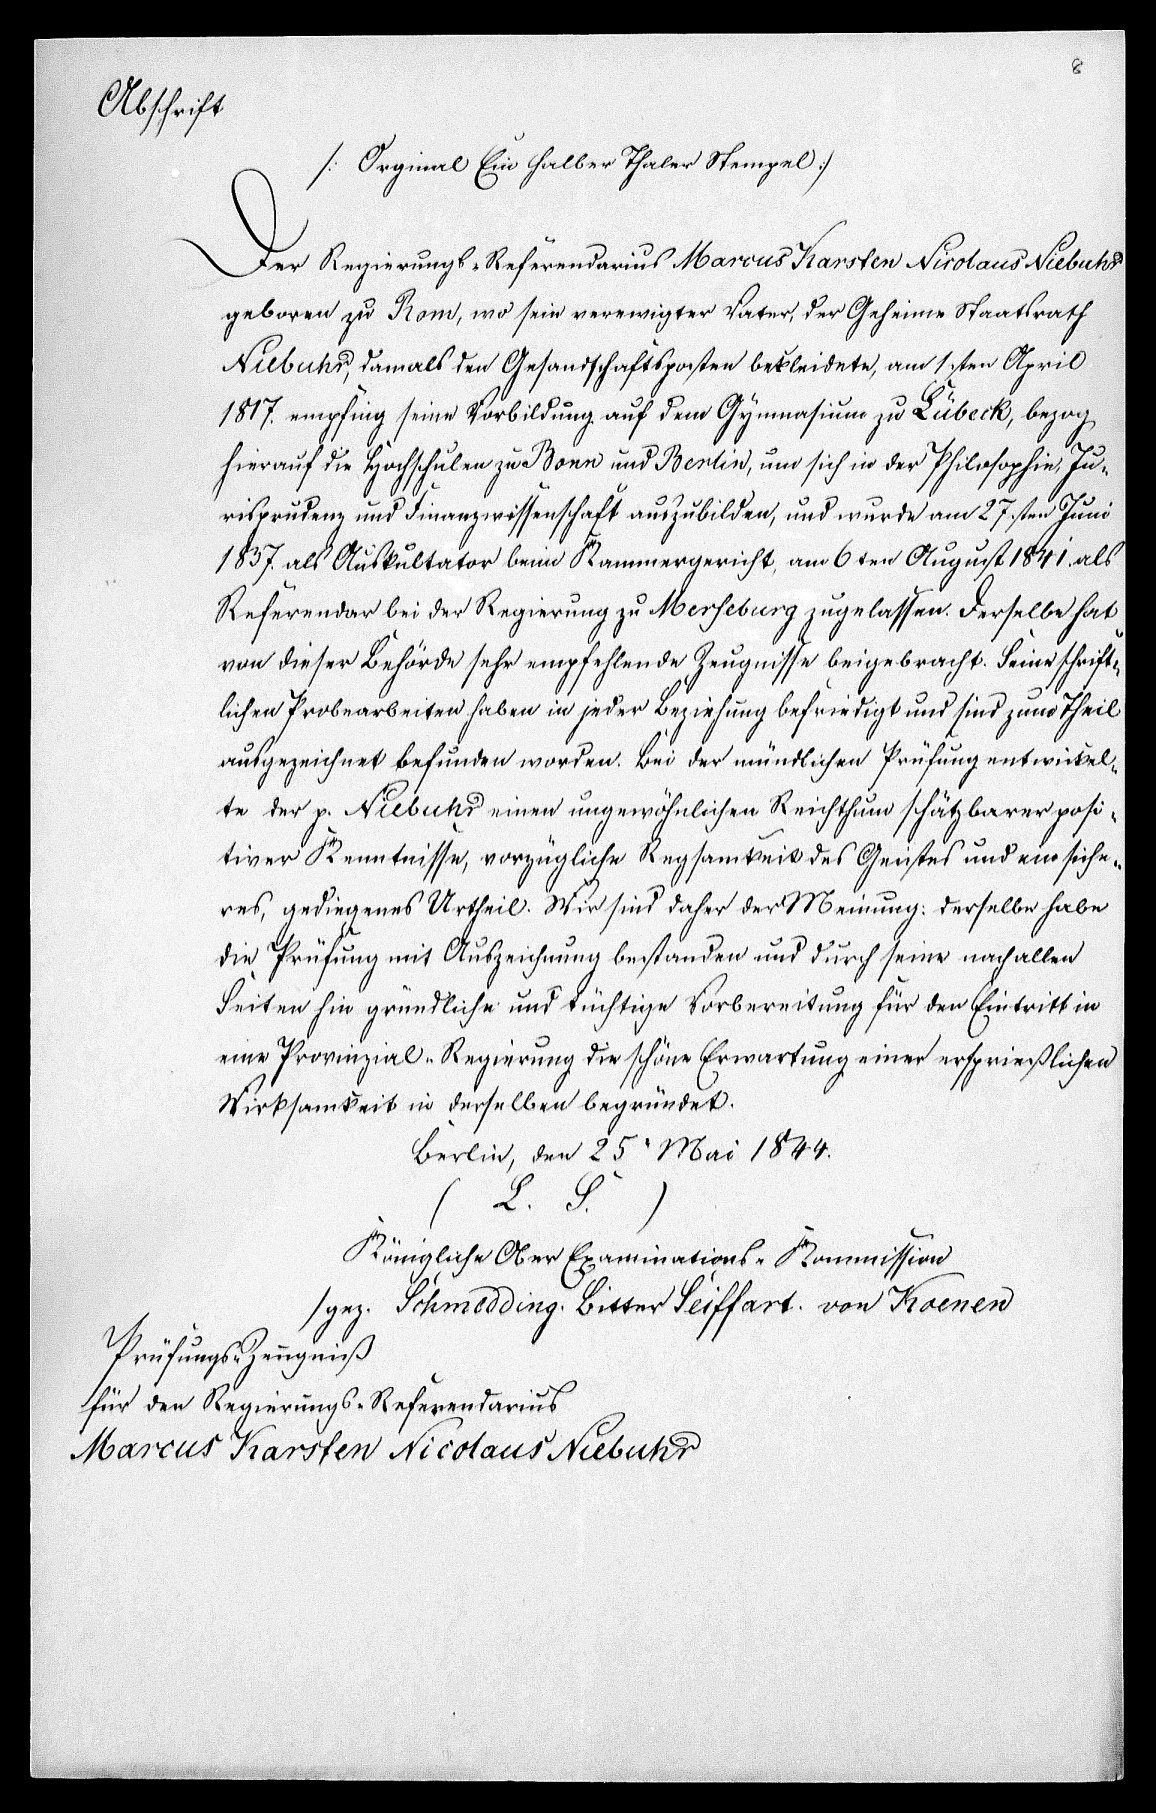 8
Abschrift
/: Orginal Ein halber Thaler Stempel :/
Der Regierungs-Referendarius Marcus Karsten Nicolaus Niebuhr
geboren zu Rom, wo sein verewigter Vater, der Geheime Staatsrath
Niebuhr, damals den Gesandschaftsposten bekleidete, am 1sten April
1817. empfing seine Vorbildung auf dem Gymnasium zu Lübeck, bezog
hierauf die Hochschulen zu Bonn und Berlin, um sich in der Philosophie, Ju-
risprudenz und Finanzwissenschaft auszubilden, und wurde am 27.sten Juni
1837. als Auskultator beim Kammergericht, am 6ten August 1841. als
Referendar bei der Regierung zu Merseburg zugelassen. Derselbe hat
von dieser Behörde sehr empfehlende Zeugnisse beigebracht. Seine schrift-
lichen Probearbeiten haben in jeder Beziehung befriedigt und sind zum Theil
ausgezeichnet befunden worden. Bei der mündlichen Prüfung entwickel-
te der p. Niebuhr einen ungewöhnlichen Reichthum schätzbarer posi-
tiver Kenntnisse, vorzügliche Regsamkeit des Geistes und ein siche-
res, gediegenes Urtheil. Wir sind daher der Meinung: derselbe habe
die Prüfung mit Auszeichnung bestanden und durch seine nach allen
Seiten hin gründliche und tüchtige Vorbereitung für den Eintritt in
eine Provinzial-Regierung die schöne Erwartung einer ersprießlichen
Wirksamkeit in derselben begründet.
Berlin, den 25. Mai 1844.
( L. S. )
Königliche Ober Examinations-Kommission
/gez. Schmedding. Bitter Seiffart. von Koenen
Prüfungs-Zeugniß
für den Regierungs-Referendarius
Marcus Karsten Nicolaus Niebuhr